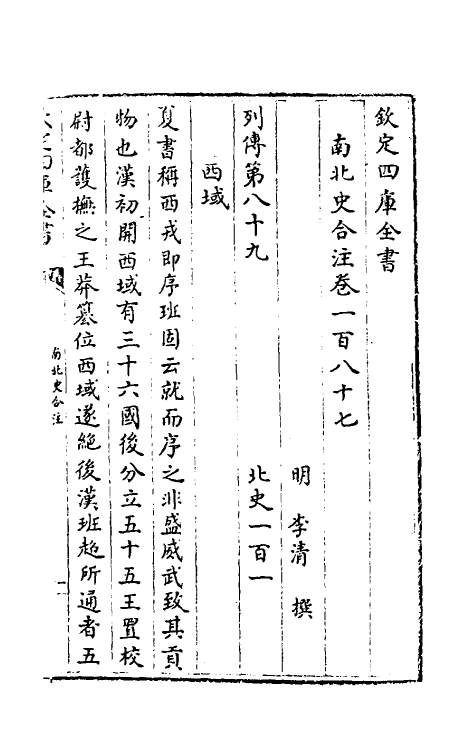 欽定四庫全書
南北史合注卷一百八十七
明 李清 撰
列傳第八十九 北史一百一
西域
夏書稱西戎即序班固云就而序之非盛威武致其貢
物也漢初開西域有三十六國後分立五十五王置校
尉都護撫之王莽篡位西域遂絶後漢班超所通者五
南北史合注